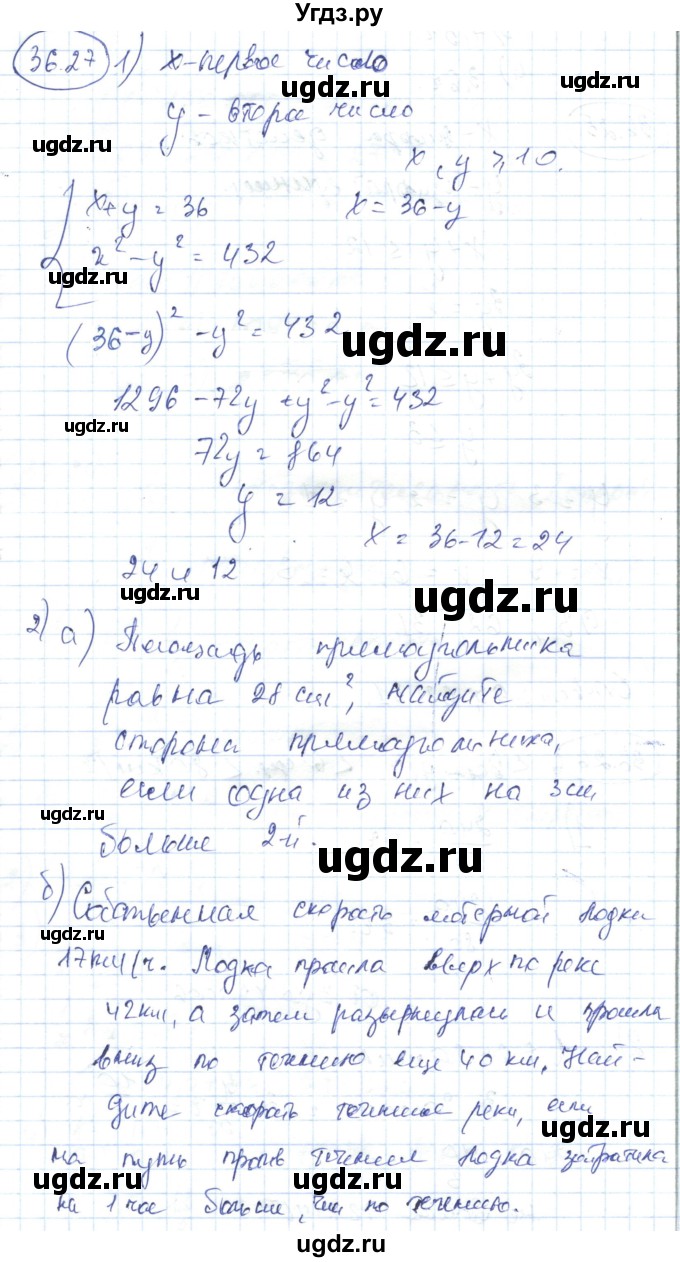 Угдз.ру
36.27 1) x - первое число
ugdz.ru ugdz.ru
y - второе число
ugdz.ru
x, y ⩾ 10.
x + y = 36 x = 36 - y
ugdz.ru
x² - y² = 432
ugdz.ru
(36-y)² - y² = 432
ugdz.ru
1296 - 72y + y² - y² = 432
ugdz.ru
72y = 864
y = 12
x = 36 - 12 = 24
24 и 12
ugdz.ru ugdz.ru
2) а) Площадь прямоугольника
равна 28 см², найдите
ugdz.ru
стороны прямоугольника,
если одна из них на 3см
ugdz.ru
больше 2-й.
ugdz.ru
б) Собственная скорость моторной лодки
ugdz.ru
17км/ч. Лодка прошла вверх по реке
42км, а затем развернулась и прошла
вниз по течению еще 40 км. Най-
ugdz.ru
дите скорость течения реки, если
ugdz.ru
на путь против течения лодка затратила
ugdz.ru
на 1 час больше, чем по течению.
ugdz.ru
ugdz.ru